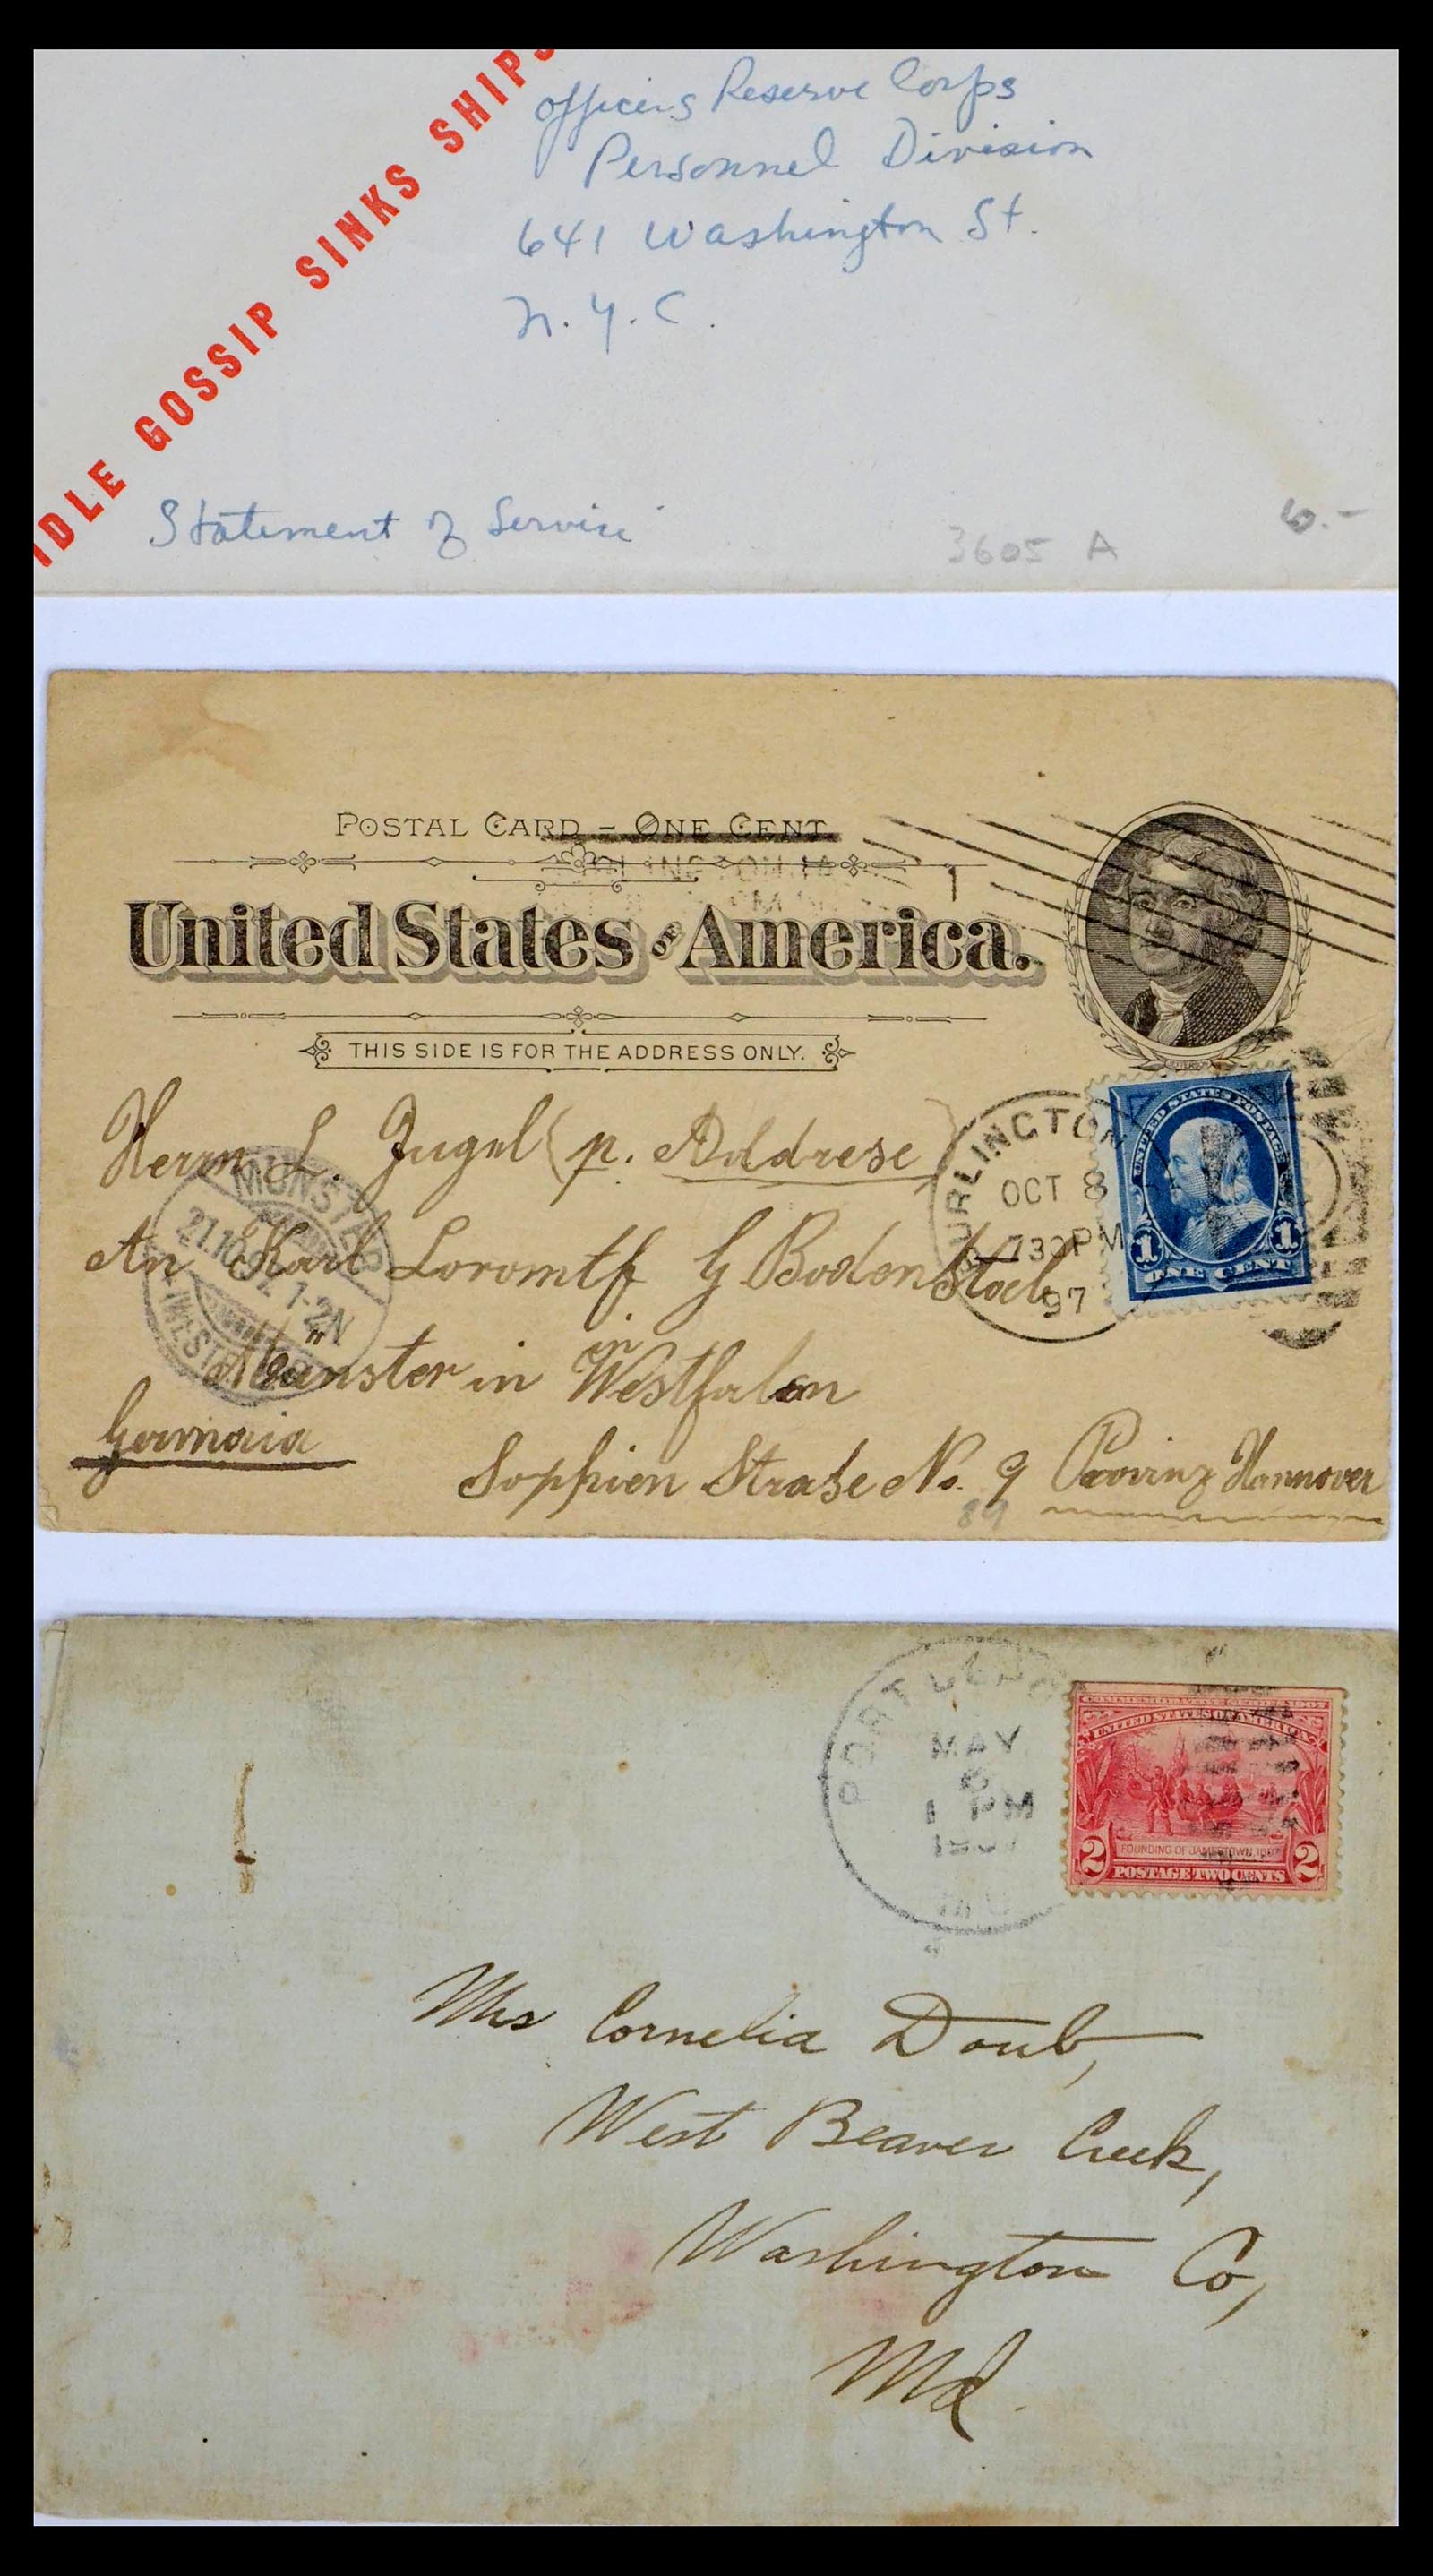 IDLE GOSSIP SINKS SHIPS
Officers Reserve Corps
Personnel Division
641 Washington St.
N.Y.C.
Statement of Service
3605 A
6.-
POSTAL CARD - ONE CENT
United States of America.
THIS SIDE IS FOR THE ADDRESS ONLY.
Herrn L. Jugel (p. Addrese)
An Karl G Bodenstock
Münster in Westfalen
in
Germaia
Sophien Straße No. 9 Provinz Hannover
89
MÜNSTER
1-2N
BURLINGTON
OCT 8
730PM
97
UNITED STATES POSTAGE
1 1
ONE CENT
PORT
MAY
6
1 PM
1907
COMMEMORATIVE SERIES 1907
UNITED STATES OF AMERICA
FOUNDING OF JAMESTOWN, 1607
2 POSTAGE TWO CENTS 2
Mrs Cornelia Doub,
West Beaver Creek,
Washington Co,
Md.